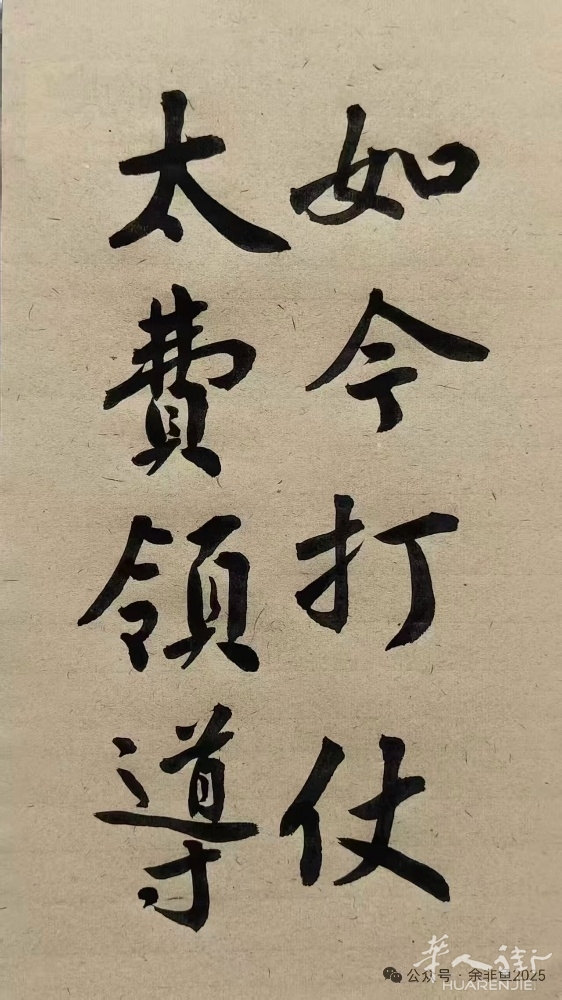 如今打仗
太費領導
华人街
HUARENJIE
公众号 · 余非鱼2025